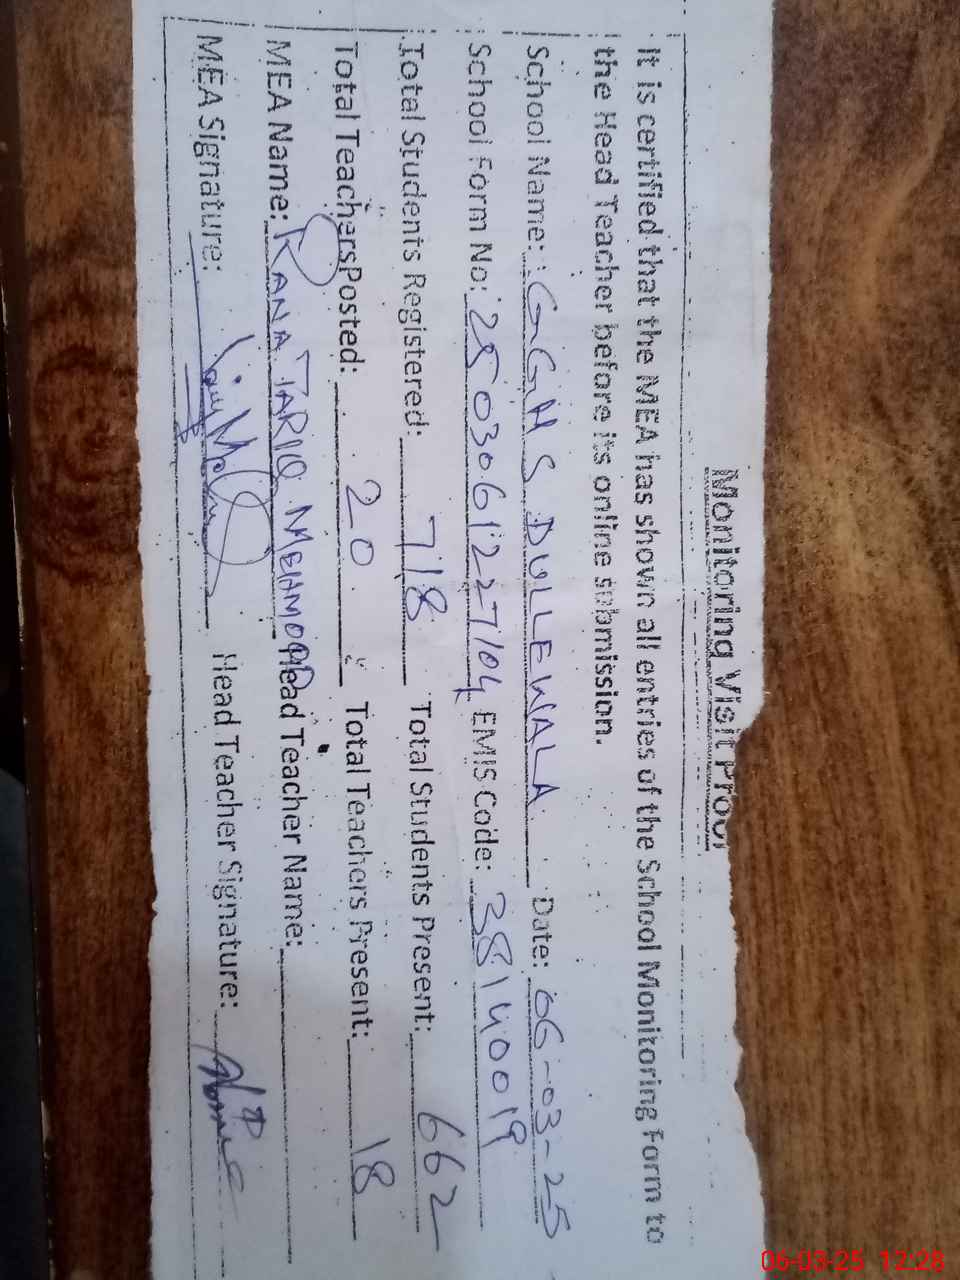 Monitoring Visit Proof
It is certified that the MEA has shown all entries of the School Monitoring Form to
the Head Teacher before its online submission.
School Name: GGHS DULLEWALA Date: 06-03-25
School Form No: 2503061227104 EMIS Code: 38140019
Total Students Registered: 718 Total Students Present: 662
Total TeachersPosted: 20 Total Teachers Present: 18
MEA Name: RANA TARIQ MEHMOOD Head Teacher Name:
MEA Signature: Head Teacher Signature:
06-03-25 12:28